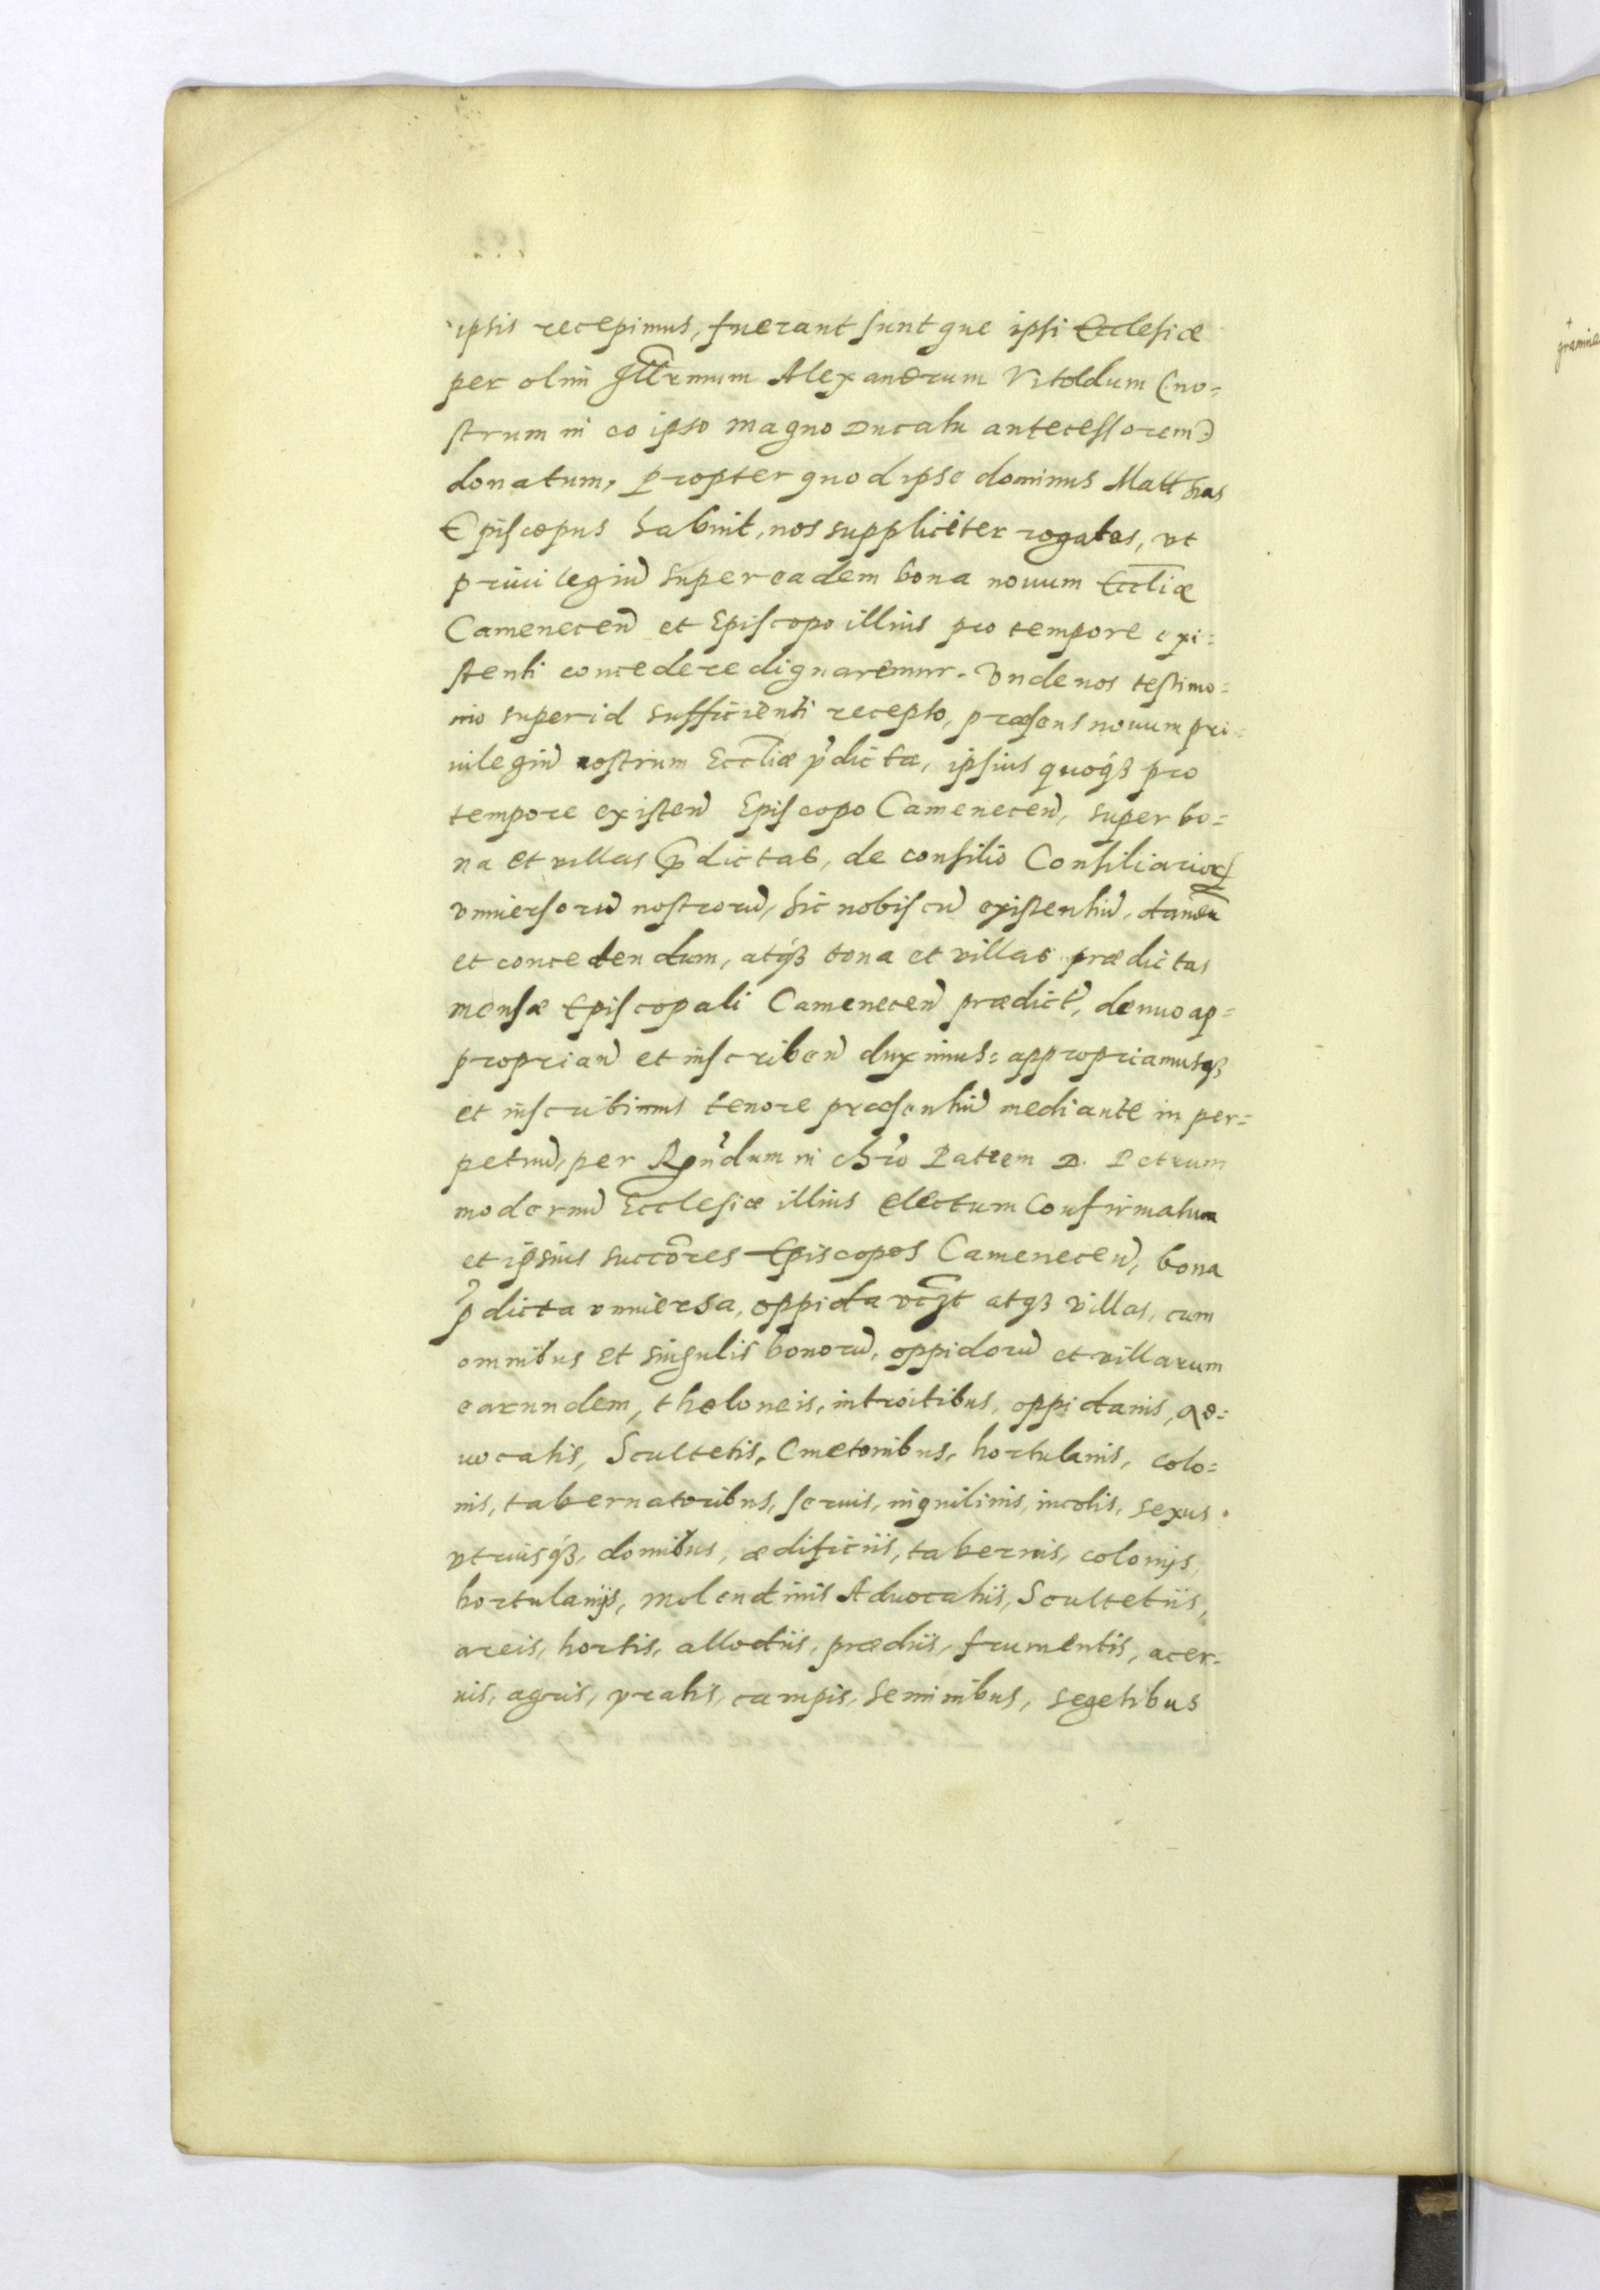 ipsis recepimus, fuerant suntque ipsi Ecclesiæ
per olim Illrmum Alexandrum Vitoldum (no=
strum in eo ipso magno Ducatu antecessorem)
donatum, Propter quod ipse dominus Matthias
Episcopus habuit, nos suppliciter rogatos, vt
priuilegiũ super eadem bona nouum Eccliæ
Camenecen̄ et Episcopo illius pro tempore exi=
stenti concedere dignaremur. Vnde nos testimo=
nio super id sufficienti recepto, præsens nouum pri=
uilegiũ nostrum Eccliæ p̄dictæ, ipsius quoqꝫ pro
tempore existen̄ Episcopo Camenecen̄, super bo=
na et villas p̄dictas, de consilio Consiliarioꝝ
vniuersorũ nostrorũ, hic nobiscũ existentiũ, dandũ
et concedendum, atqꝫ bona et villas prædictas
mensæ Episcopali Camenecen̄ prædict̃, denuo ap=
proprian̄ et inscriben̄ duximus: appropriamusqꝫ
et inscribimus tenore præsentiũ mediante in per=
petuũ, per Rn̄dum in chr̃o Patrem D. Petrum
modernũ Ecclesiæ illius electum Confirmatum
et ipsius succōres Episcopos Camenecen̄, bona
p̄dicta vniuersa, oppida vcꝫt atqꝫ villas, cum
omnibus et singulis bonorũ, oppidorũ et villarum
earundem, theloneis, introitibus, oppidanis, Ad=
uocatis, Scultetis, Cmetonibus, hortulanis, colo=
nis, tabernatoribus, seruis, inquilinis, incolis, sexus
vtriusqꝫ, domibus, ædificiis, tabernis, colonijs,
hortulanijs, molendinis Aduocatiis, Scultetiis,
areis, hortis, allodiis, prædiis, frumentis, acer=
uis, agris, pratis, campis, seminibus, segetibus